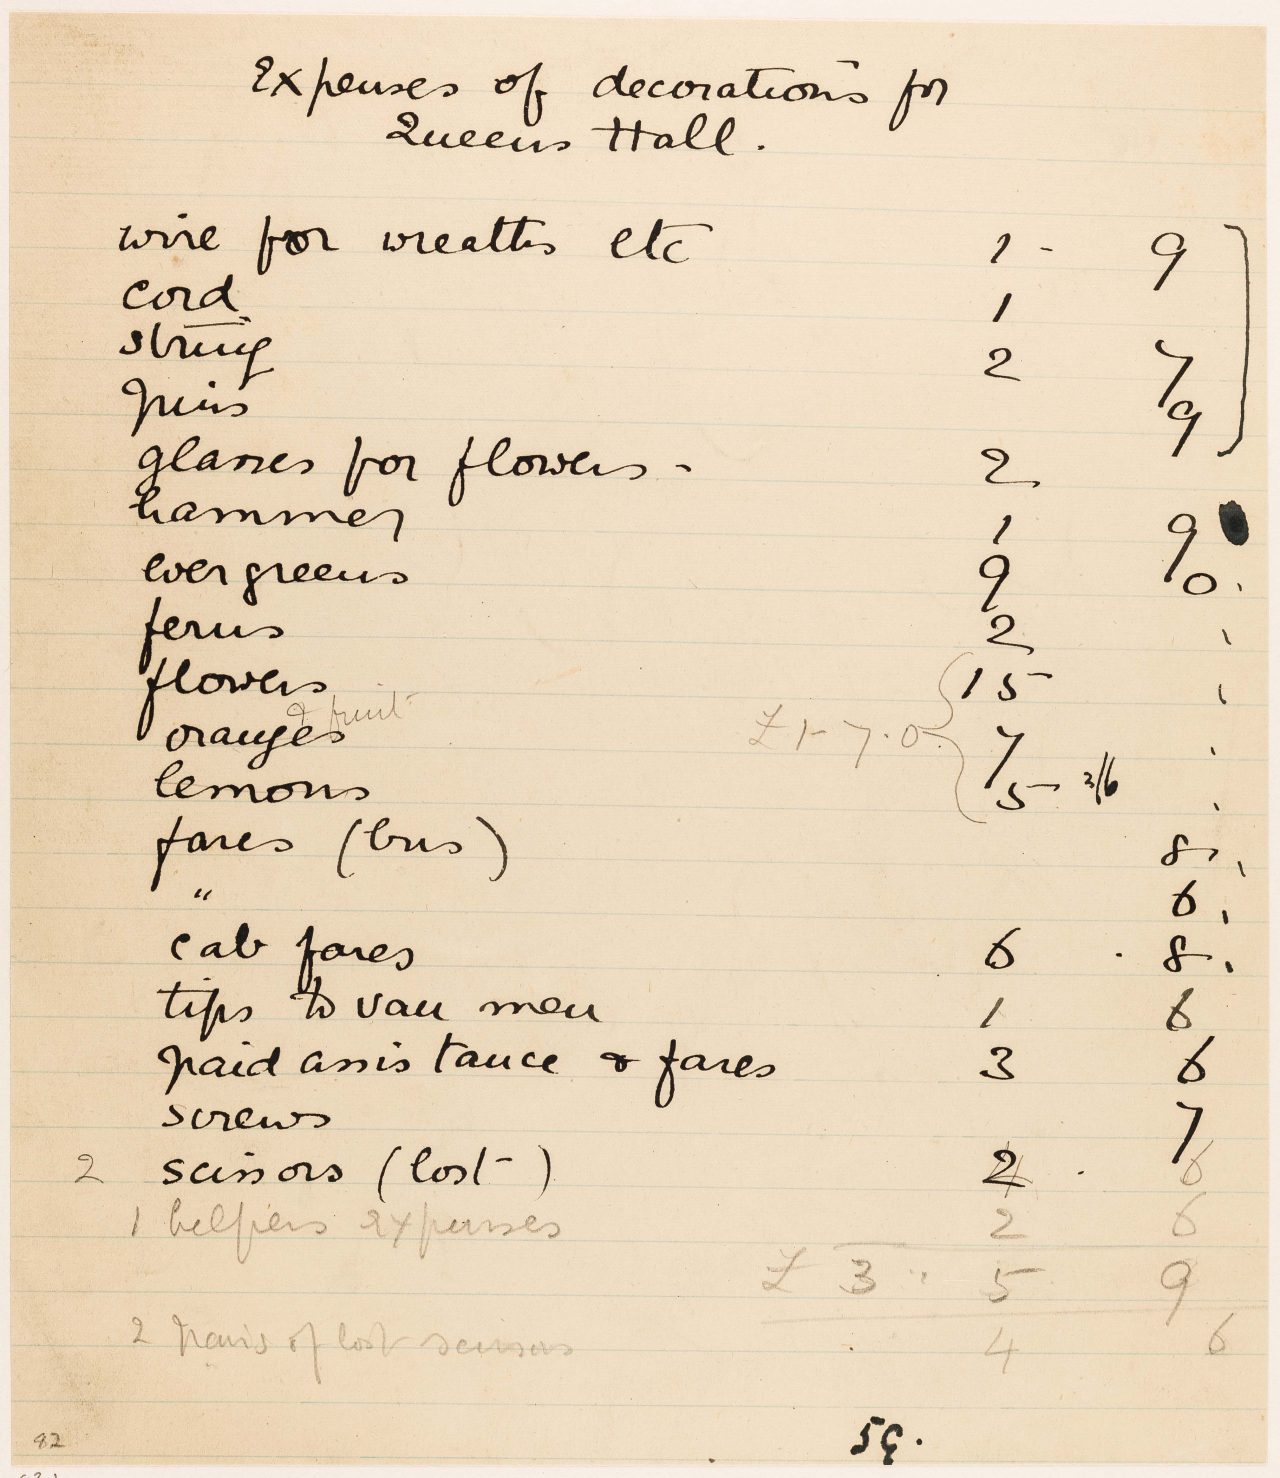 Expenses of decorations for
Queens Hall.
wire for wreaths etc 1 - 9
cord 1
string 2 7
pins 9
glasses for flowers - 2
hammer 1 9
evergreens 9 0.
ferns 2
flowers 15
oranges & fruit £1-7.0 7
lemons 5 3/6
fares (bus) 8
" 6
cab fares 6 . 8.
tips to van men 1 6
paid assistance & fares 3 6
screws 7
2 scissors (lost) 4 . 6
1 helpers expenses 2 6
£ 3 " 5 9
2 pairs of lost scissors 4 6
59.
92